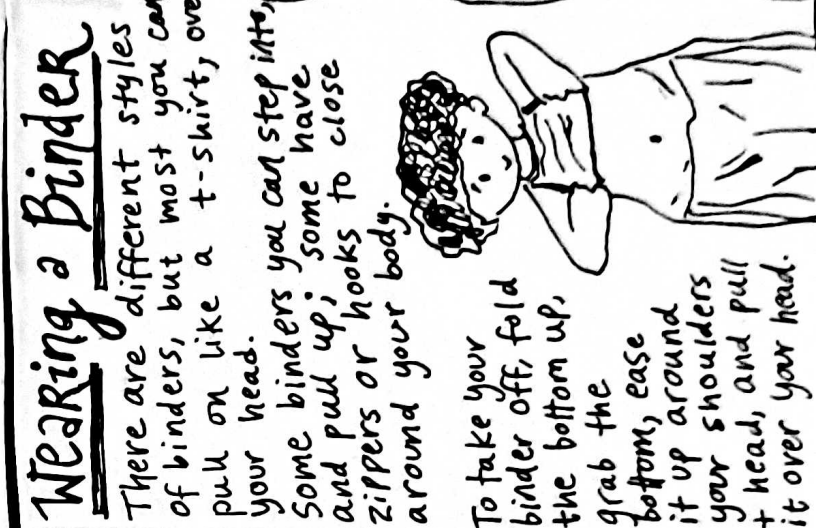 Wearing a Binder
There are different styles
of binders, but most you can
pull on like a t-shirt, ove
your head.
Some binders you can step into,
and pull up; some have
zippers or hooks to close
around your body.
To take your
binder off, fold
the bottom up,
grab the
bottom, ease
it up around
your shoulders
+ head, and pull
it over your head.